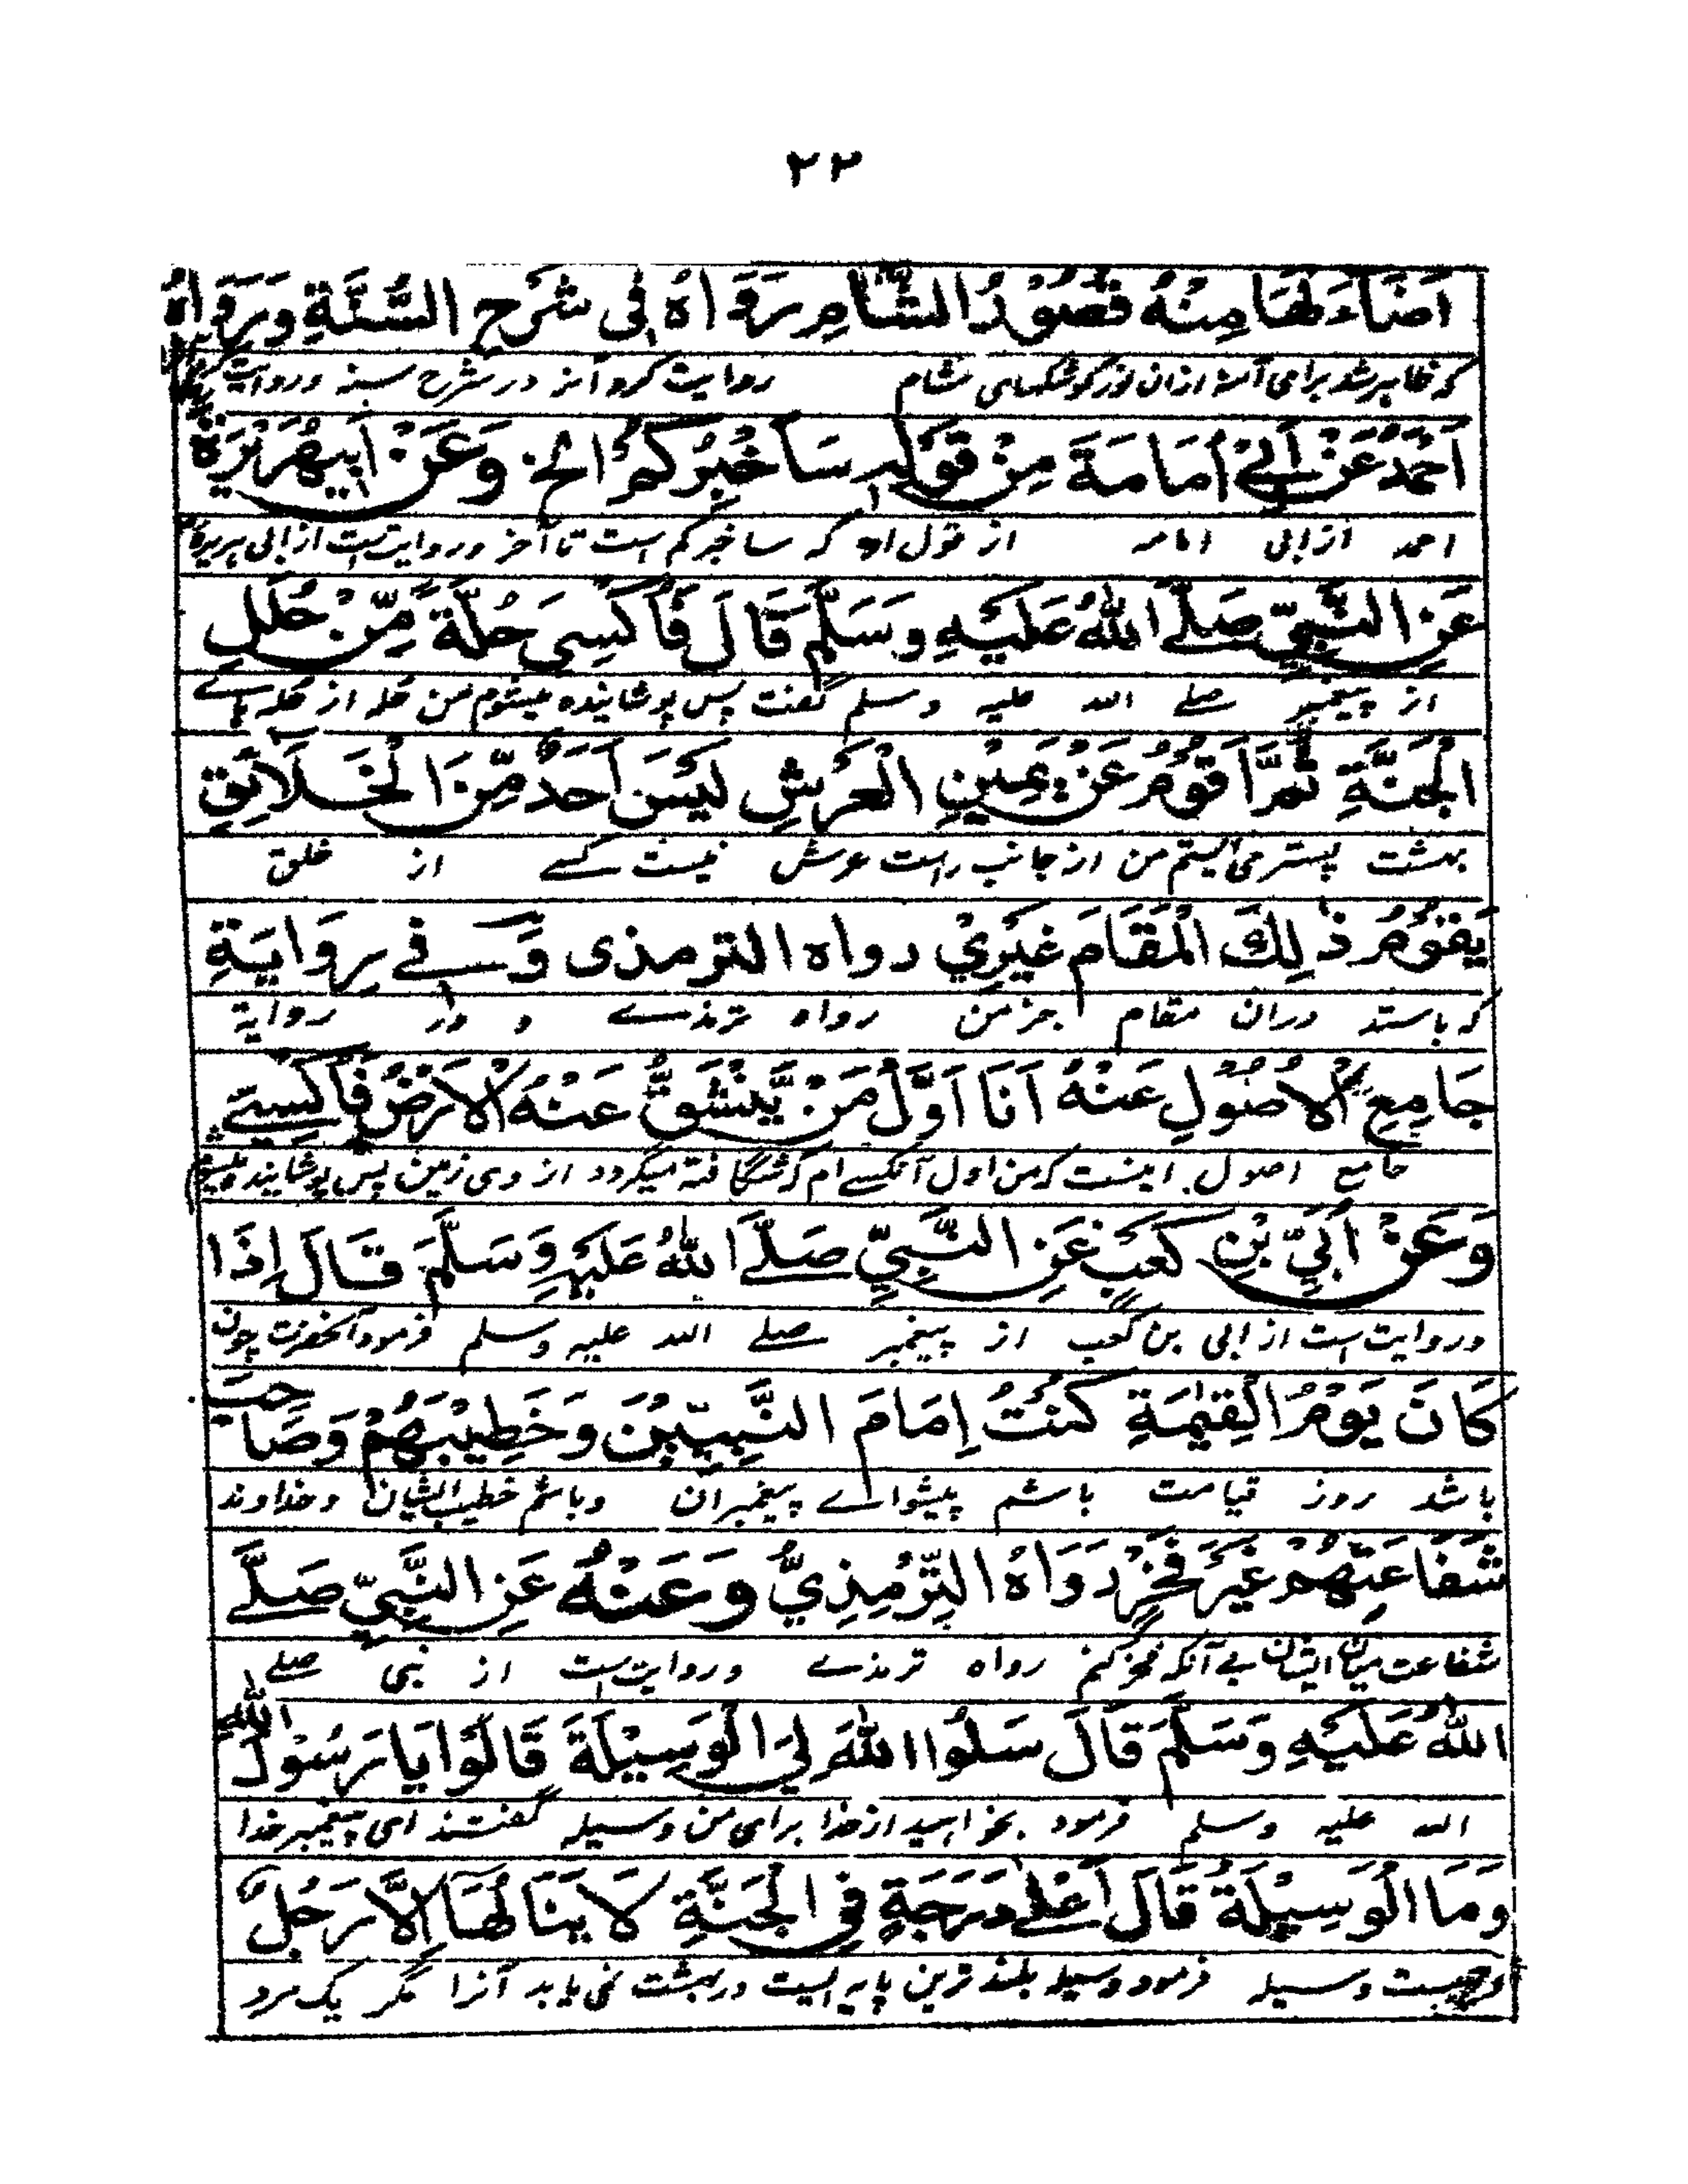 ۲۲
اَضَاءَ لَهَا مِنْهُ قُصُوْرُ الشَّامِ رَوَاهُ فِي شَرْحِ السُّنَّةِ وَرَوَاهُ
که ظاهر شد برای آمنه ازان نور کوشکهای شام روایت کرد آنرا در شرح سنه و روایت
اَحْمَدُ عَنْ اَبِيْ اُمَامَةَ مِنْ قَوْلِهِ سَاُخْبِرُكُمْ الخ وَعَنْ اَبِيْهُرَيْرَةَ
احمد از ابی امامه از قول او که ساخبرکم است تا آخر و روایت است از ابی هریره
عَنِ النَّبِيِّ صَلَّے اللّٰهُ عَلَيْهِ وَسَلَّمَ قَالَ فَاُكْسٰی حُلَّةً مِّنْ حُلَلِ
از پیغمبر صلے الله علیه و سلم گفت پس پوشانیده میشوم من حله از حله هاے
الْجَنَّةِ ثُمَّ اَقُوْمُ عَنْ يَمِيْنِ الْعَرْشِ لَيْسَ اَحَدٌ مِّنَ الْخَلَائِقِ
بهشت پستر می ایستم من از جانب راست عرش نیست کسے از خلق
يَقُوْمُ ذٰلِكَ الْمَقَامَ غَيْرِيْ رواه الترمذی وَفے رِوَايَةِ
که باستد دران مقام بجز من رواه ترمذے و در روایة
جَامِعِ الْاُصُوْلِ عَنْهُ اَنَا اَوَّلُ مَنْ يَّنْشَقُّ عَنْهُ الْاَرْضُ فَاُكْسٰے
جامع اصول اینست که من اول آنکسے ام که شگافته میگردد از وی زمین پس پوشانیده میشوم
وَعَنْ اُبَيِّ بْنِ كَعْبٍ عَنِ النَّبِيِّ صَلَّے اللّٰهُ عَلَيْهِ وَسَلَّمَ قَالَ اِذَا
و روایت است از ابی بن کعب از پیغمبر صلے الله علیه و سلم فرمود آنحضرت چون
كَانَ يَوْمُ الْقِيٰمَةِ كُنْتُ اِمَامَ النَّبِيِّيْنَ وَخَطِيْبَهُمْ وَصَاحِبَ
باشد روز قیامت باشم پیشواے پیغمبران و باشم خطیب ایشان و خداوند
شَفَاعَتِهِمْ غَيْرَ فَخْرٍ رَوَاهُ التِّرْمِذِيُّ وَعَنْهُ عَنِ النَّبِيِّ صَلَّے
شفاعت میان ایشان بے آنکه فخر کنم رواه ترمذے و روایت است از نبی صلے
اللّٰهُ عَلَيْهِ وَسَلَّمَ قَالَ سَلُوا اللّٰهَ لِيَ الْوَسِيْلَةَ قَالُوْا يَا رَسُوْلَ اللّٰهِ
الله علیه و سلم فرمود بخواهید از خدا برای من وسیله گفتند ای پیغمبر خدا
وَمَا الْوَسِيْلَةُ قَالَ اَعْلٰے دَرَجَةٍ فِي الْجَنَّةِ لَا يَنَالُهَا اِلَّا رَجُلٌ
و چیست وسیله فرمود وسیله بلند ترین پایه ایست در بهشت نمی یابد آنرا مگر یک مرد